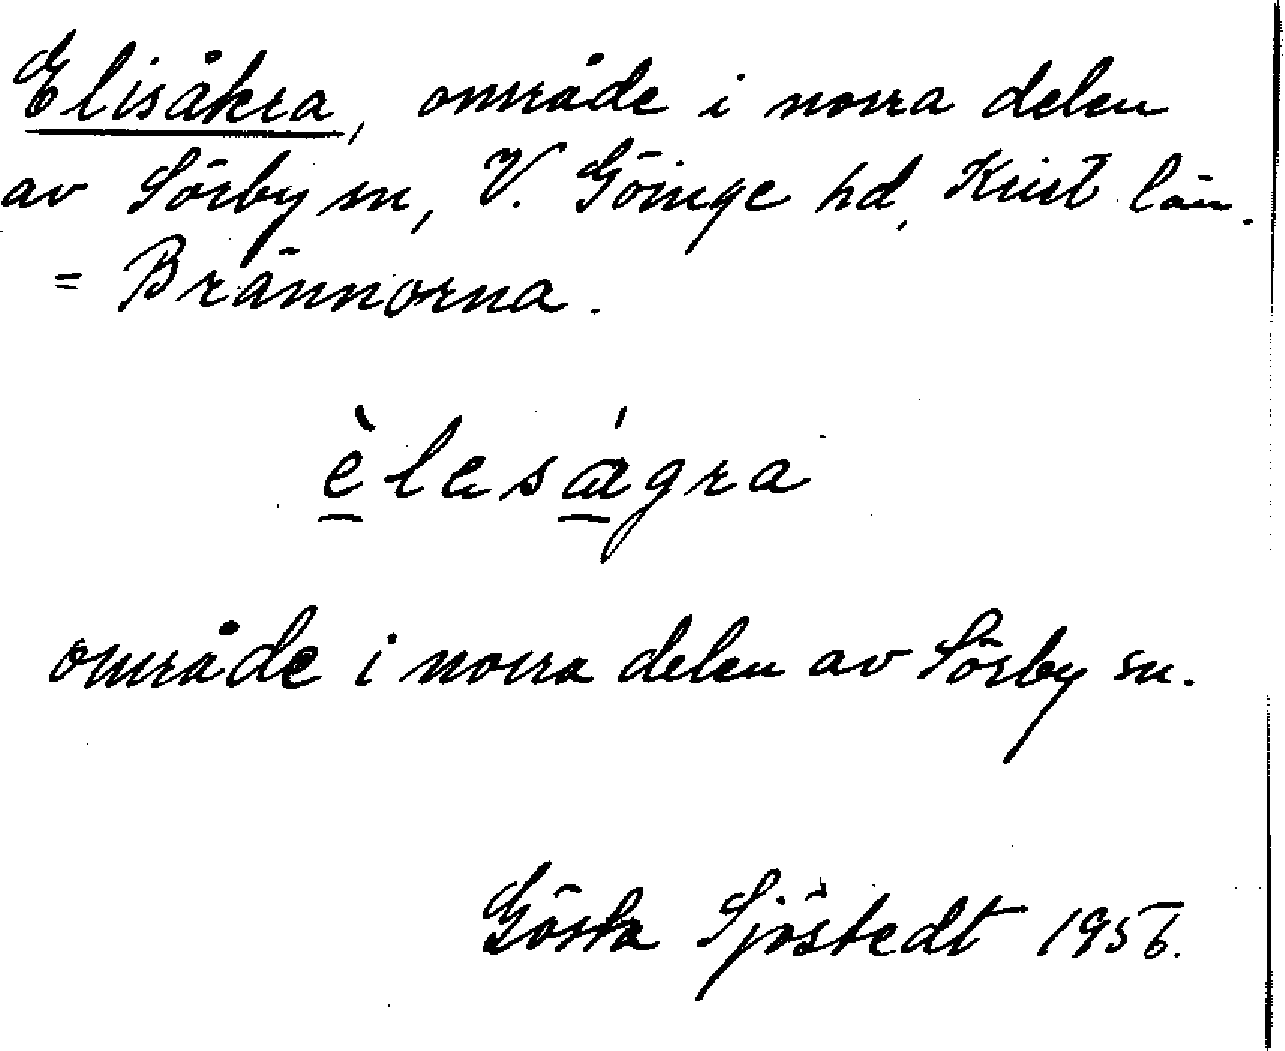 Elisåkra, område i norra delen
av Sörby sn, V. Göinge hd, Krist län.
= Brännorna.
èleságra
område i norra delen av Sörby sn.
Gösta Sjöstedt 1956.